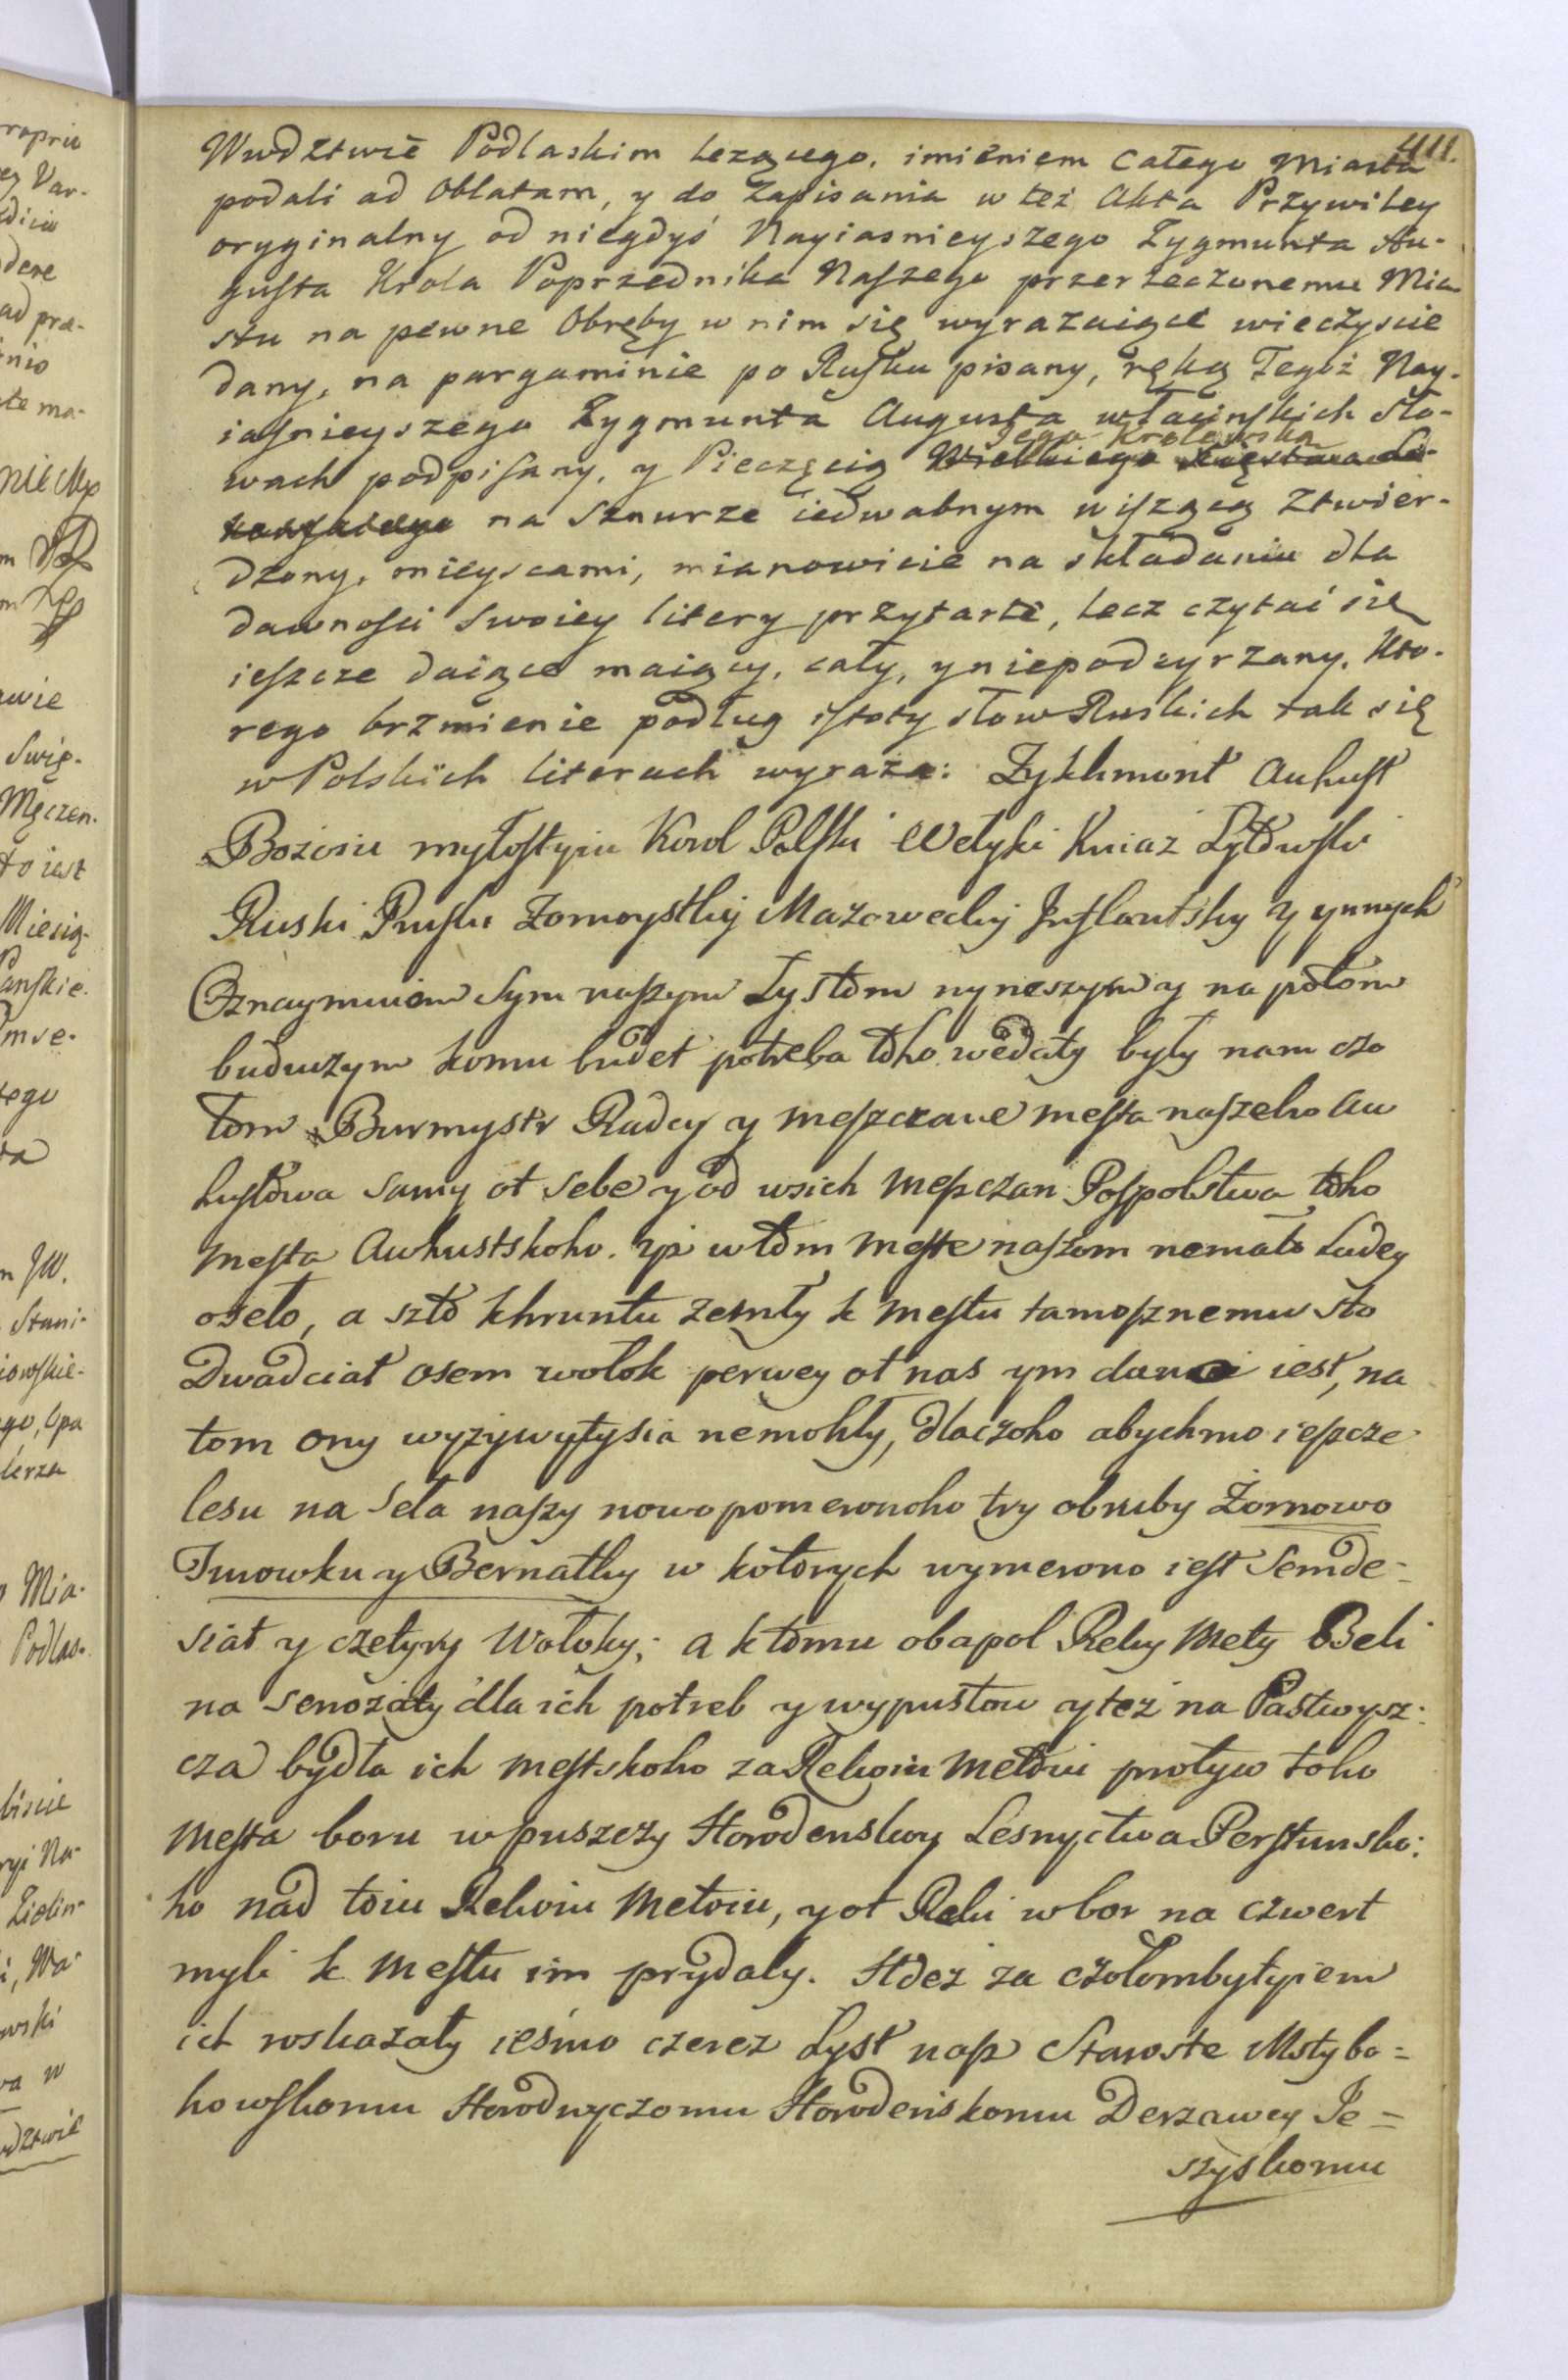 411.
Wwdztwie Podlaskim leząċego, imieniem całego Miasta
podali ad Oblatam, y do Zapisania w też Akta Przywiley
oryginalny od niegdyś Nayiasnieyszego Zygmunta Au-
gusta Krola Poprzednika Naszego przerzeczonemu Mia
stu na pewne Obręby w nim się wyrazaiące wieczyscie
dany, na pargaminie po Rusku pisany, ręką Tegoż Nay-
iasnieyszego Zygmunta Augusta w łacinskich Sło-
wach podpisany, y Pieczęcią Jego Krolewską
na Sznurze iedwabnym wiszącą Ztwier-
dzony, mieyscami, mianowicie na składaniu dla
dawnosci Swoiey litery przytarte, lecz czytać się
ieszcze daiące maiący, cały, y niepodeyrzany. Kto-
rego brzmienie podług istoty słow Ruskich tak się
w Polskich literach wyraża: Zykhmont Auhust
Bożoiu myłostyiu Korol Polski Wełyki Kniaź Lytowski
Ruski Pruski Zomoystkij Mazowecky Inflantsky y ynnych
Oznaymuiem Sym naszym Lystom nyneszym y na potom
buduczym komu budet potreba toho wedaty były nam czo
łom Burmystr Radcy y meszczane mesta naszeho Au
hustowa samy ot sebe y od wsich meszczan Pospolstwa toho
mesta Auhustskoho. yż w tom meste naszom nemało Ludey
oseło, a szto khruntu zemły k mestu tamosznemu sto
Dwadciat osem wołok perwey ot nas ym dano iest, na
tom ony wyżywytysia nemohły, dlaczoho abychmo ieszcze
lesu na Seła naszy nowopomeronoho try obruby Żornowo
Turowku y Bernatky w kotorych wymerono iest Semde-
siat y czetyry Wołoky; a k tomu obapol Reky Mety Beli
na senożaty dla ich potreb y wypustow y też na Pastwysz-
cza bydła ich mestskoho za Rekoiu Metoiu protyw toho
mesta boru w puszczy Horodenskoy Lesnyctwa Perstunsko-
ho nad toiu Rekoiu Metoiu, y ot Reki w bor na czwert
myli k mestu im prydaly. Hdeż za czołombytyiem
ich roskazały ieśmo czerez Lyst nasz Staroste Mstybo-
howskomu Horodnyczomu Horodenskomu Derzawcy Je-
szyskomu